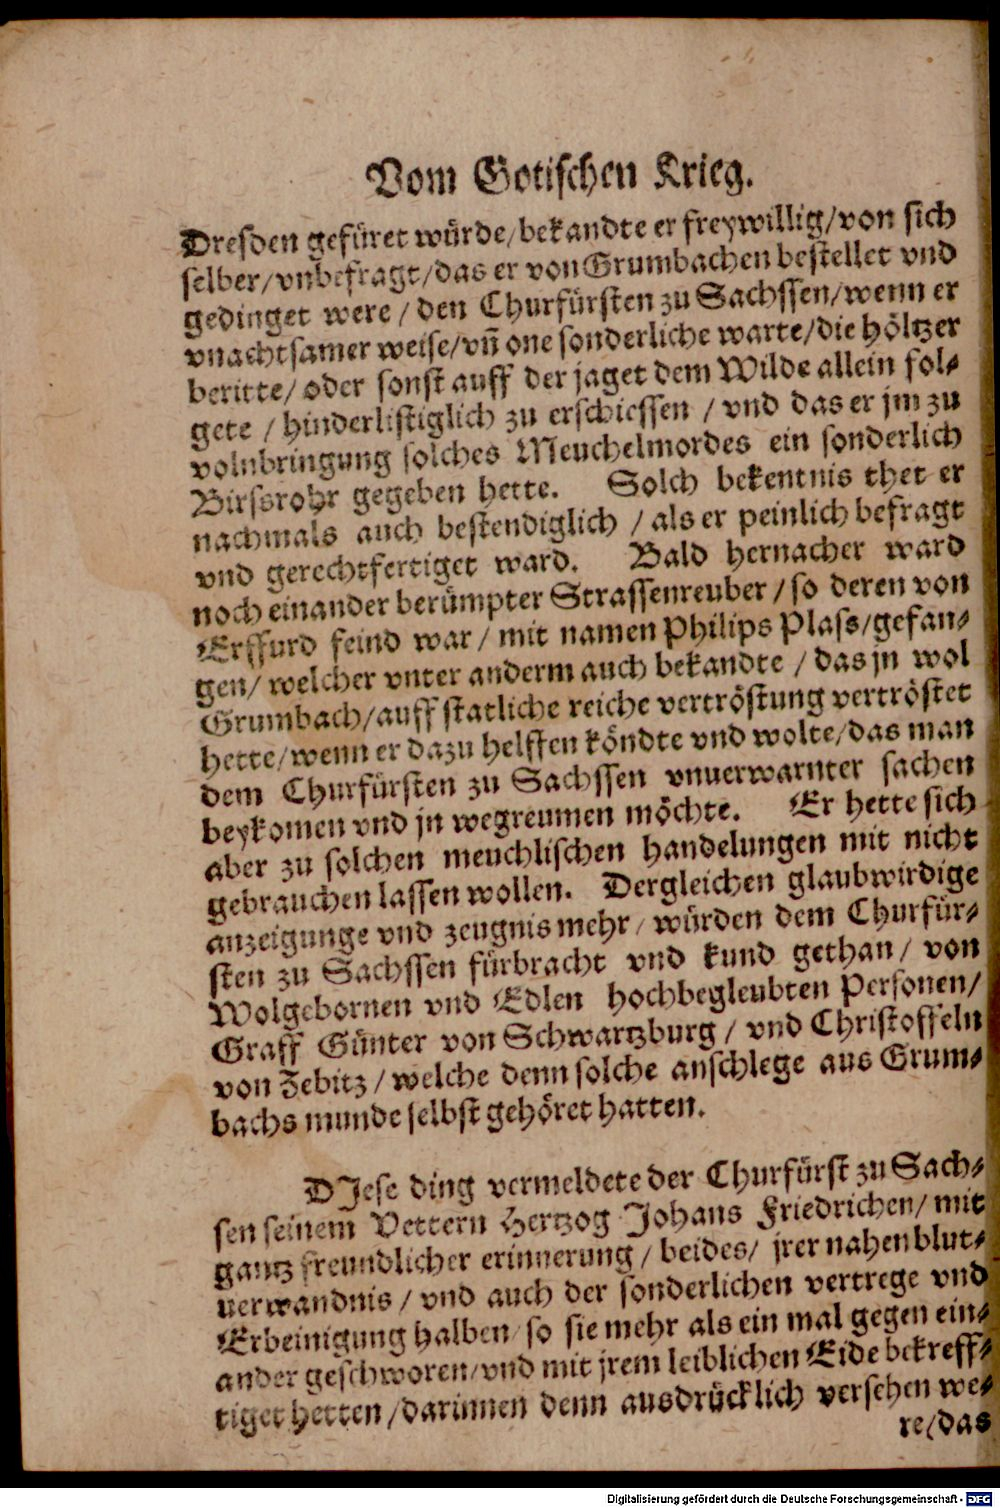 Vom Gotischen Krieg.
Dresden gefüret würde/ bekandte er freywillig/ von sich
selber/ vnbefragt/ das er von Grumbachen bestellet vnd
gedinget were / den Churfürsten zu Sachssen/ wenn er
vnachtsamer weise/ vñ one sonderliche warte/ die höltzer
beritte/ oder sonst auff der jaget dem Wilde allein fol⸗
gete / hinderlistiglich zu erschiessen / vnd das er jm zu
volnbringung solches Meuchelmordes ein sonderlich
Birssrohr gegeben hette. Solch bekentnis thet er
nachmals auch bestendiglich / als er peinlich befragt
vnd gerechtfertiget ward. Bald hernacher ward
noch einander berümpter Strassenreuber / so deren von
Erffurd feind war / mit namen Philips Plass/ gefan⸗
gen/ welcher vnter anderm auch bekandte / das jn wol
Grumbach/ auff statliche reiche vertröstung vertröstet
hette/ wenn er dazu helffen köndte vnd wolte/ das man
dem Churfürsten zu Sachssen vnuerwarnter sachen
beykomen vnd jn wegreumen möchte. Er hette sich
aber zu solchen meuchlischen handelungen mit nicht
gebrauchen lassen wollen. Dergleichen glaubwirdige
anzeigunge vnd zeugnis mehr / würden dem Churfür⸗
sten zu Sachssen fürbracht vnd kund gethan / von
Wolgebornen vnd Edlen hochbegleubten Personen/
Graff Günter von Schwartzburg / vnd Christoffeln
von Zebitz / welche denn solche anschlege aus Grum⸗
bachs munde selbst gehöret hatten.
DJese ding vermeldete der Churfürst zu Sach⸗
sen seinem Vettern Hertzog Johans Friedrichen/ mit
gantz freundlicher erinnerung / beides/ jrer nahen blut⸗
uerwandnis / vnd auch der sonderlichen vertrege vnd
Erbeinigung halben/ so sie mehr als ein mal gegen ein⸗
ander geschworen/ vnd mit jrem leiblichen Eide bekreff⸗
tiget hetten / darinnen denn ausdrücklich versehen we⸗
re/ das
Digitalisierung gefördert durch die Deutsche Forschungsgemeinschaft - DFG